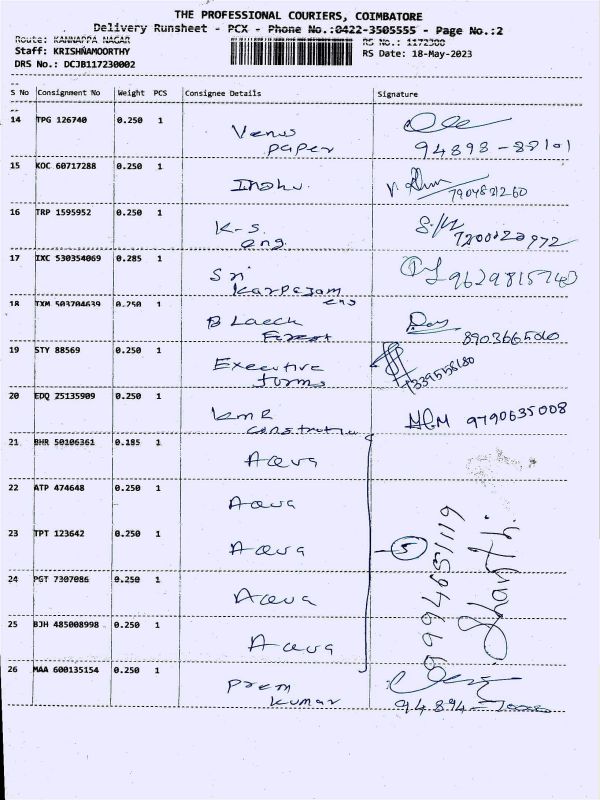 THE PROFESSIONAL COURIERS, COIMBATORE
Delivery Runsheet - PCX - Phone No.:0422-3505555 - Page No.:2
Route: KANNAPPA NAGAR
RS No.: 1172300
Staff: KRISHNAMOORTHY
RS Date: 18-May-2023
DRS No.: DCJB117230002
S No Consignment No Weight PCS Consignee Details Signature
14 TPG 126740 0.250 1
Venus
paper
94893-88101
15 KOC 60717288 0.250 1
7904821260
16 TRP 1595952 0.250 1
K-S.
eng.
17 IXC 530354069 0.285 1
Sri
Karpagam
eng
9629815740
18 TXM 503704639 0.250 1
B Laeck
8903665060
19 STY 88569 0.250 1
Executive
forms
20 EDQ 25135909 0.250 1
KMR
9790635008
21 BHR 50106361 0.185 1
Aqua
22 ATP 474648 0.250 1
Aqua
23 TPT 123642 0.250 1
Aqua
5
24 PGT 7307086 0.250 1
Aqua
25 BJH 485008998 0.250 1
Aqua
9994651119
Shanthi.
26 MAA 600135154 0.250 1
Prem
Kumar